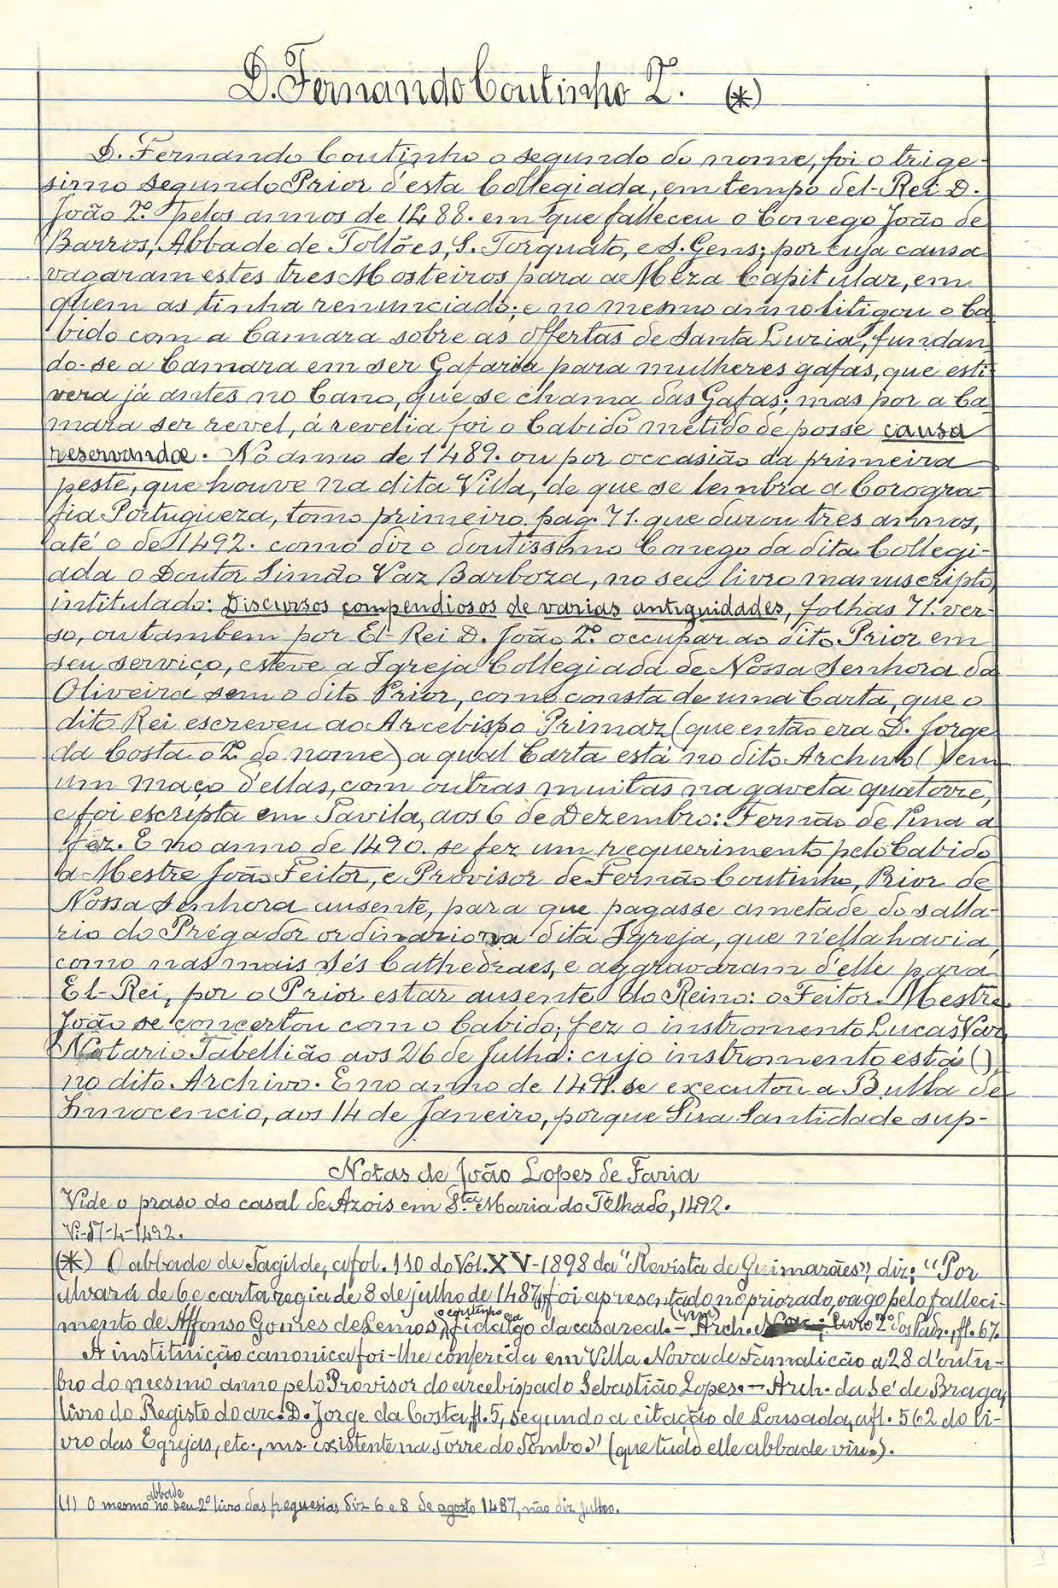 D. Fernando Coutinho 2. (*)
D. Fernando Coutinho o segundo do nome, foi o trige-
simo segundo Prior d'esta Collegiada, em tempo del-Rei D.
João 2º pelos annos de 1488. em que falleceu o Conego João de
Barros, Abbade de Tollões, S. Torquato, e S. Gens; por cuja causa
vagaram estes tres Mosteiros para a Meza Capitular, em
quem as tinha renunciado; e no mesmo anno litigou o Ca
bido com a Camara sobre as offertas de Santa Luzia, fundan
do-se a Camara em ser Gafaria para mulheres gafas, que esti
vera já antes no Cano, que se chama das Gafas; mas por a Ca-
mara ser revel, á revelia foi o Cabido metido de posse causa
reservandæ. No anno de 1489. ou por occasião da primeira
peste, que houve na dita Villa, de que se lembra a Corogra-
fia Portugueza, tomo primeiro pag. 71. que durou tres annos,
até o de 1492. como diz o doutissimo Conego da dita Collegi-
ada o Doutor Simão Vaz Barboza, no seu livro manuscripto,
intitulado: Discursos compendiosos de varias antiguidades, folhas 71. ver-
so, ou tambem por El-Rei D. João 2º occupar ao dito Prior em
seu serviço, esteve a Igreja Collegiada de Nossa Senhora da
Oliveira sem o dito Prior, como consta de uma Carta, que o
dito Rei escreveu ao Arcebispo Primaz (que então era D. Jorge
da Costa o 2º do nome) a qual Carta está no dito Archivo ( ) em
um maço d'ellas, com outras muitas na gaveta quatorze,
e foi escripta em Tavila, aos 6 de Dezembro: Fernão de Pina a
fez. E no anno de 1490. se fez um requerimento pelo Cabido
a Mestre João Feitor, e Provisor de Fernão Coutinho, Prior de
Nossa Senhora ausente, para que pagasse ametade do salla-
rio do Prégador ordinario na dita Igreja, que n'ella havia,
como nas mais Sés Cathedraes, e aggravaram d'elle para
El-Rei, por o Prior estar ausente do Reino: o Feitor Mestre
João se concertou com o Cabido; fez o instromento Lucas Vaz
Notario Tabellião aos 26 de Julho: cujo instromento está ( )
no dito Archivo. E no anno de 1491. se executou a Bulla de
Innocencio, aos 14 de Janeiro, porque Sua Santidade sup-
Notas de João Lopes de Faria
Vide o praso do casal de Azois em Sta Maria do Telhado, 1492.
V. 17-4-1492.
(*) O abbade de Tagilde, a fol. 110 do Vol. XV-1898 da "Revista de Guimarães", diz: "Por
alvará de 6 e carta regia de 8 de julho de 1487 (1) foi apresentado no priorado, vago pelo falleci-
mento de Affonso Gomes de Lemos, o coutinho fidalgo da casa real. - Arch. livro 2º do Padr., fl. 67.
A instituição canonica foi-lhe conferida em Villa Nova de Famalicão a 28 d'outu-
bro do mesmo anno pelo Provisor do arcebispado Sebastião Lopes. - Arch. da Sé de Braga,
livro do Registo do arc. D. Jorge da Costa, fl. 5, segundo a citação de Lousada, a fl. 562 do li-
vro das Egrejas, etc., ms. existente na Torre do Tombo." (que tudo elle abbade viu.).
(1) O mesmo abbade no seu 2º livro das freguesias diz 6 e 8 de agosto 1487, não diz julho.